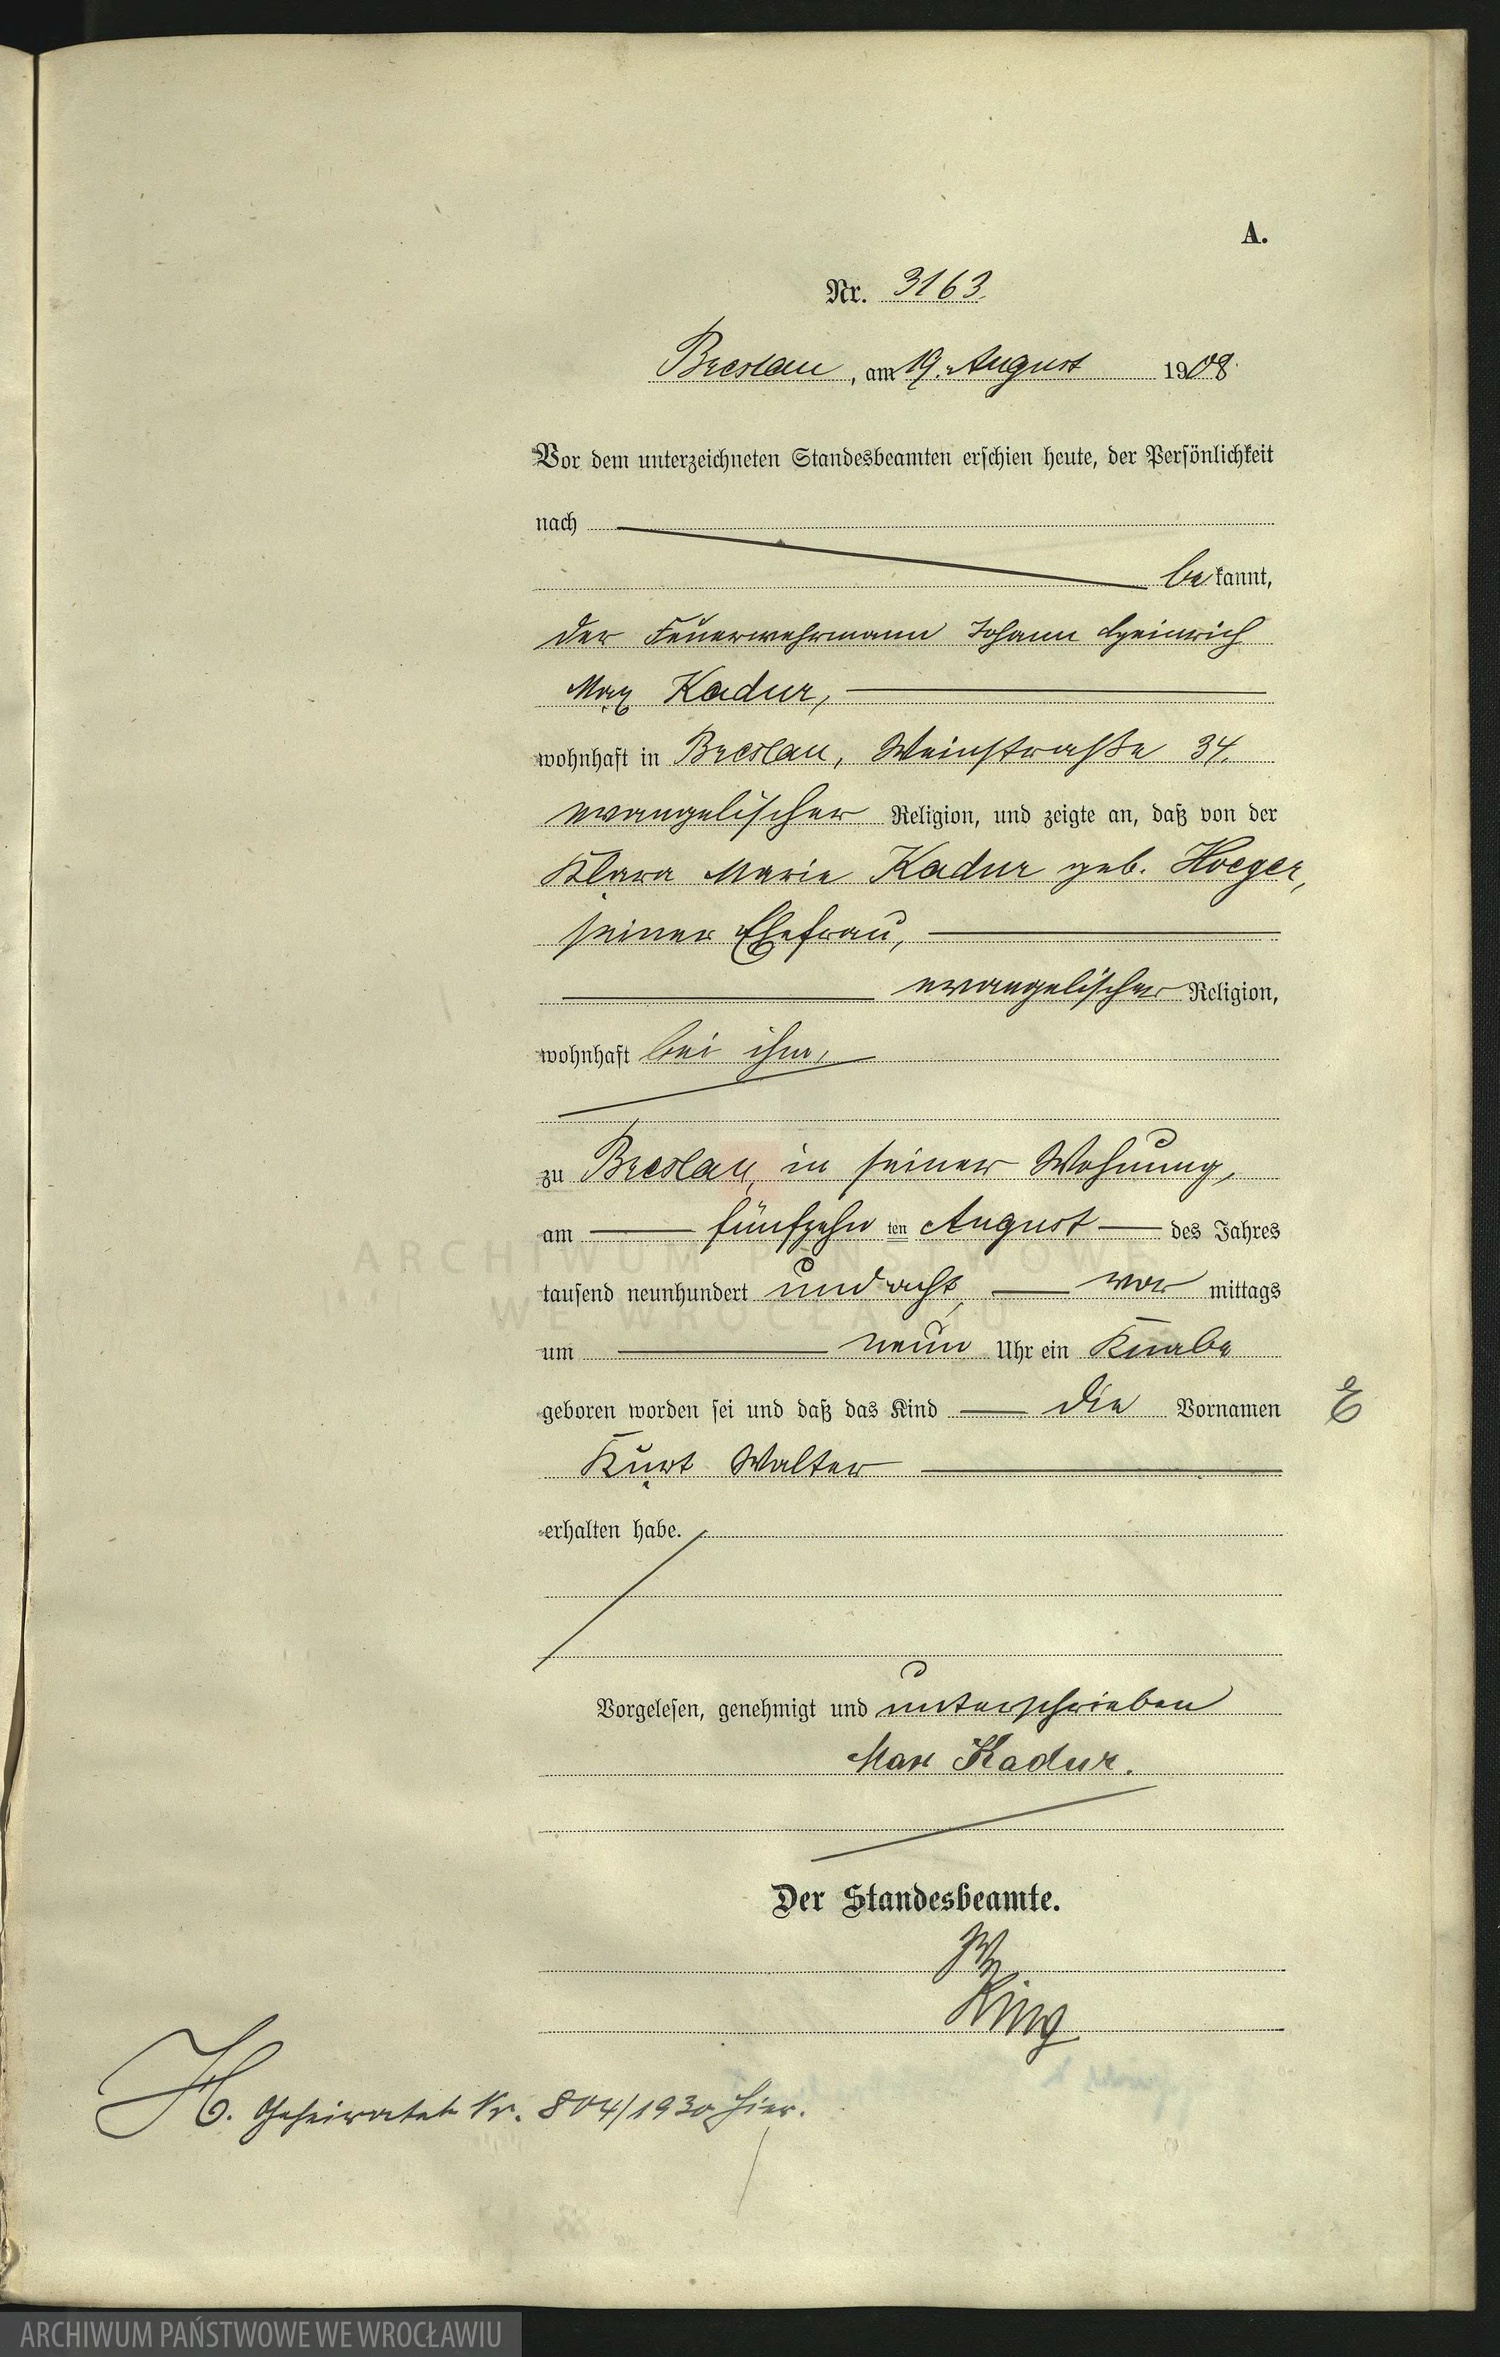 A.
Nr. 3163.
Breslau, am 19. August 1908.
Vor dem unterzeichneten Standesbeamten erschien heute, der Persönlichkeit
nach
bekannt,
der Feuerwehrmann Johann Heinrich
Max Kadur,
wohnhaft in Breslau, Weinstraße 34.
evangelischer Religion, und zeigte an, daß von der
Klara Marie Kadur geb. Hoeger,
seiner Ehefrau,
evangelischer Religion,
wohnhaft bei ihm,
zu Breslau, in seiner Wohnung,
am fünfzehn ten August des Jahres
tausend neunhundert und acht, vor mittags
um neun Uhr ein Knabe
geboren worden sei und daß das Kind die Vornamen
Kurt Walter
erhalten habe.
Vorgelesen, genehmigt und unterschrieben
Max Kadur.
Der Standesbeamte.
H. Geheiratet Nr. 804/1930 hier.
ARCHIWUM PAŃSTWOWE
WE WROCŁAWIU
ARCHIWUM PAŃSTWOWE WE WROCŁAWIU